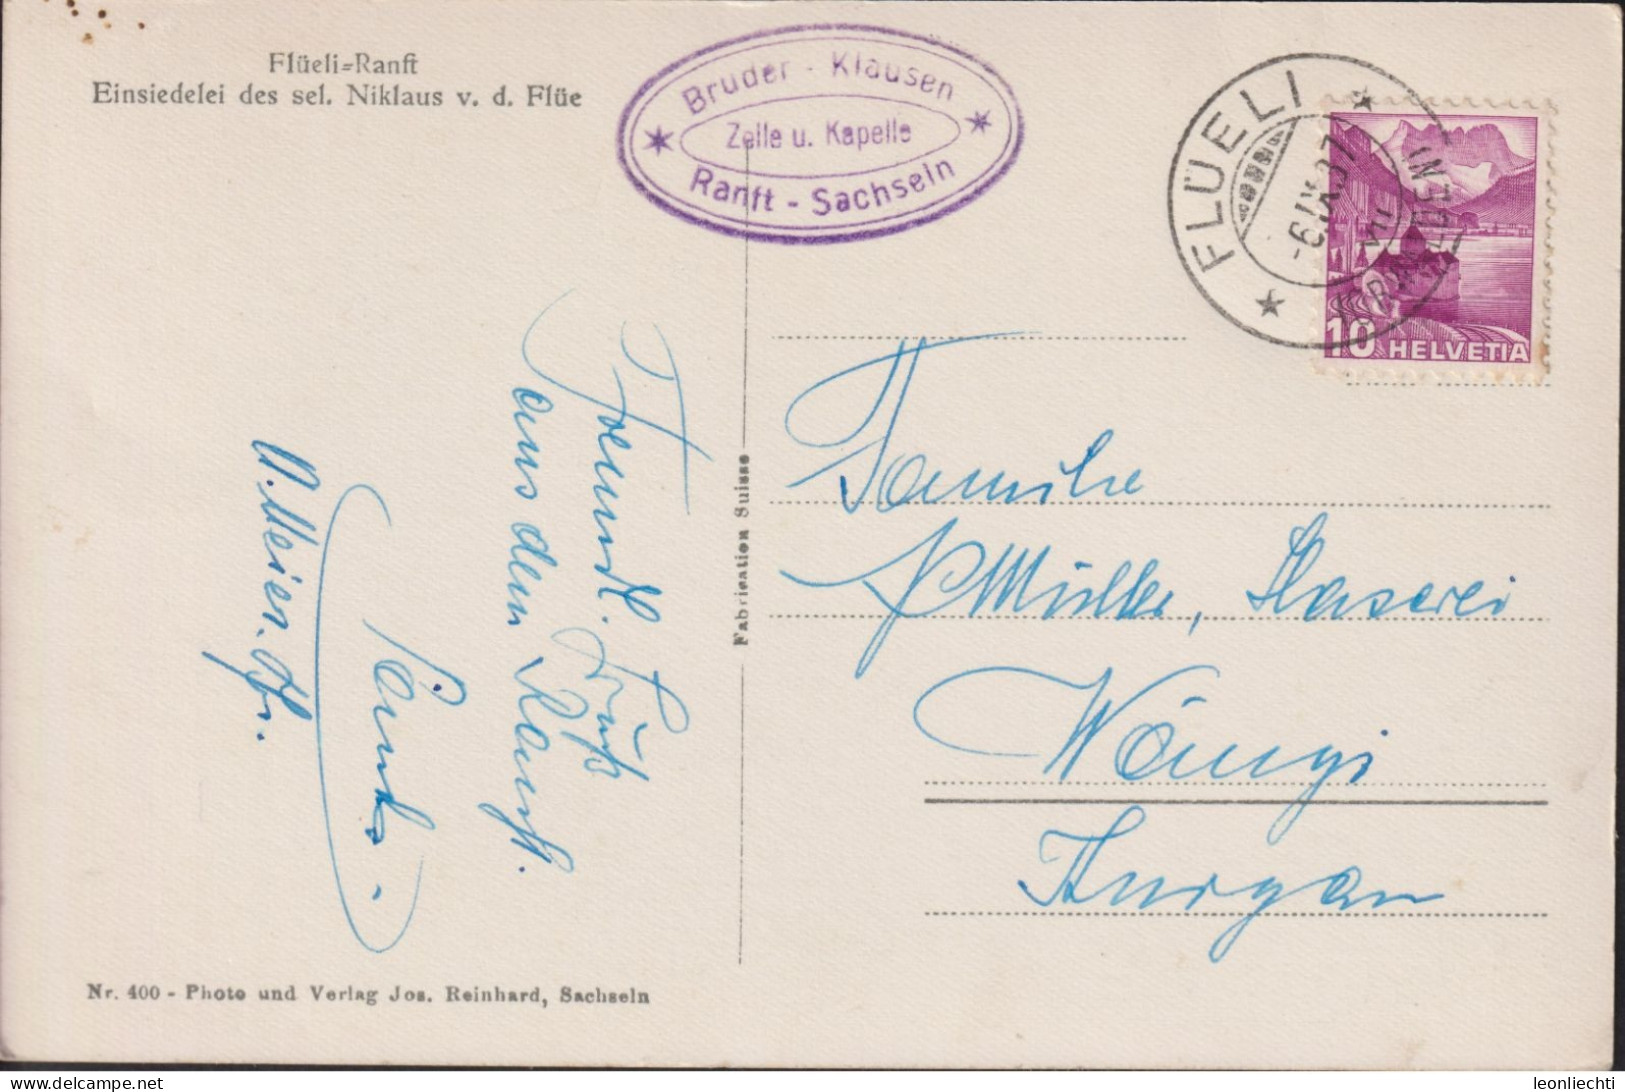 Flüeli-Ranft
Einsiedelei des sel. Niklaus v. d. Flüe
Bruder - Klausen
Zelle u. Kapelle
Ranft - Sachseln
FLÜELI
-6.IX.37
VII
10 HELVETIA
Freundl. Grüße
aus dem Ranft.
Familie
Müller,
Wängi
Thurgau
Fabrication Suisse
Nr. 400 - Photo und Verlag Jos. Reinhard, Sachseln
leonliechti